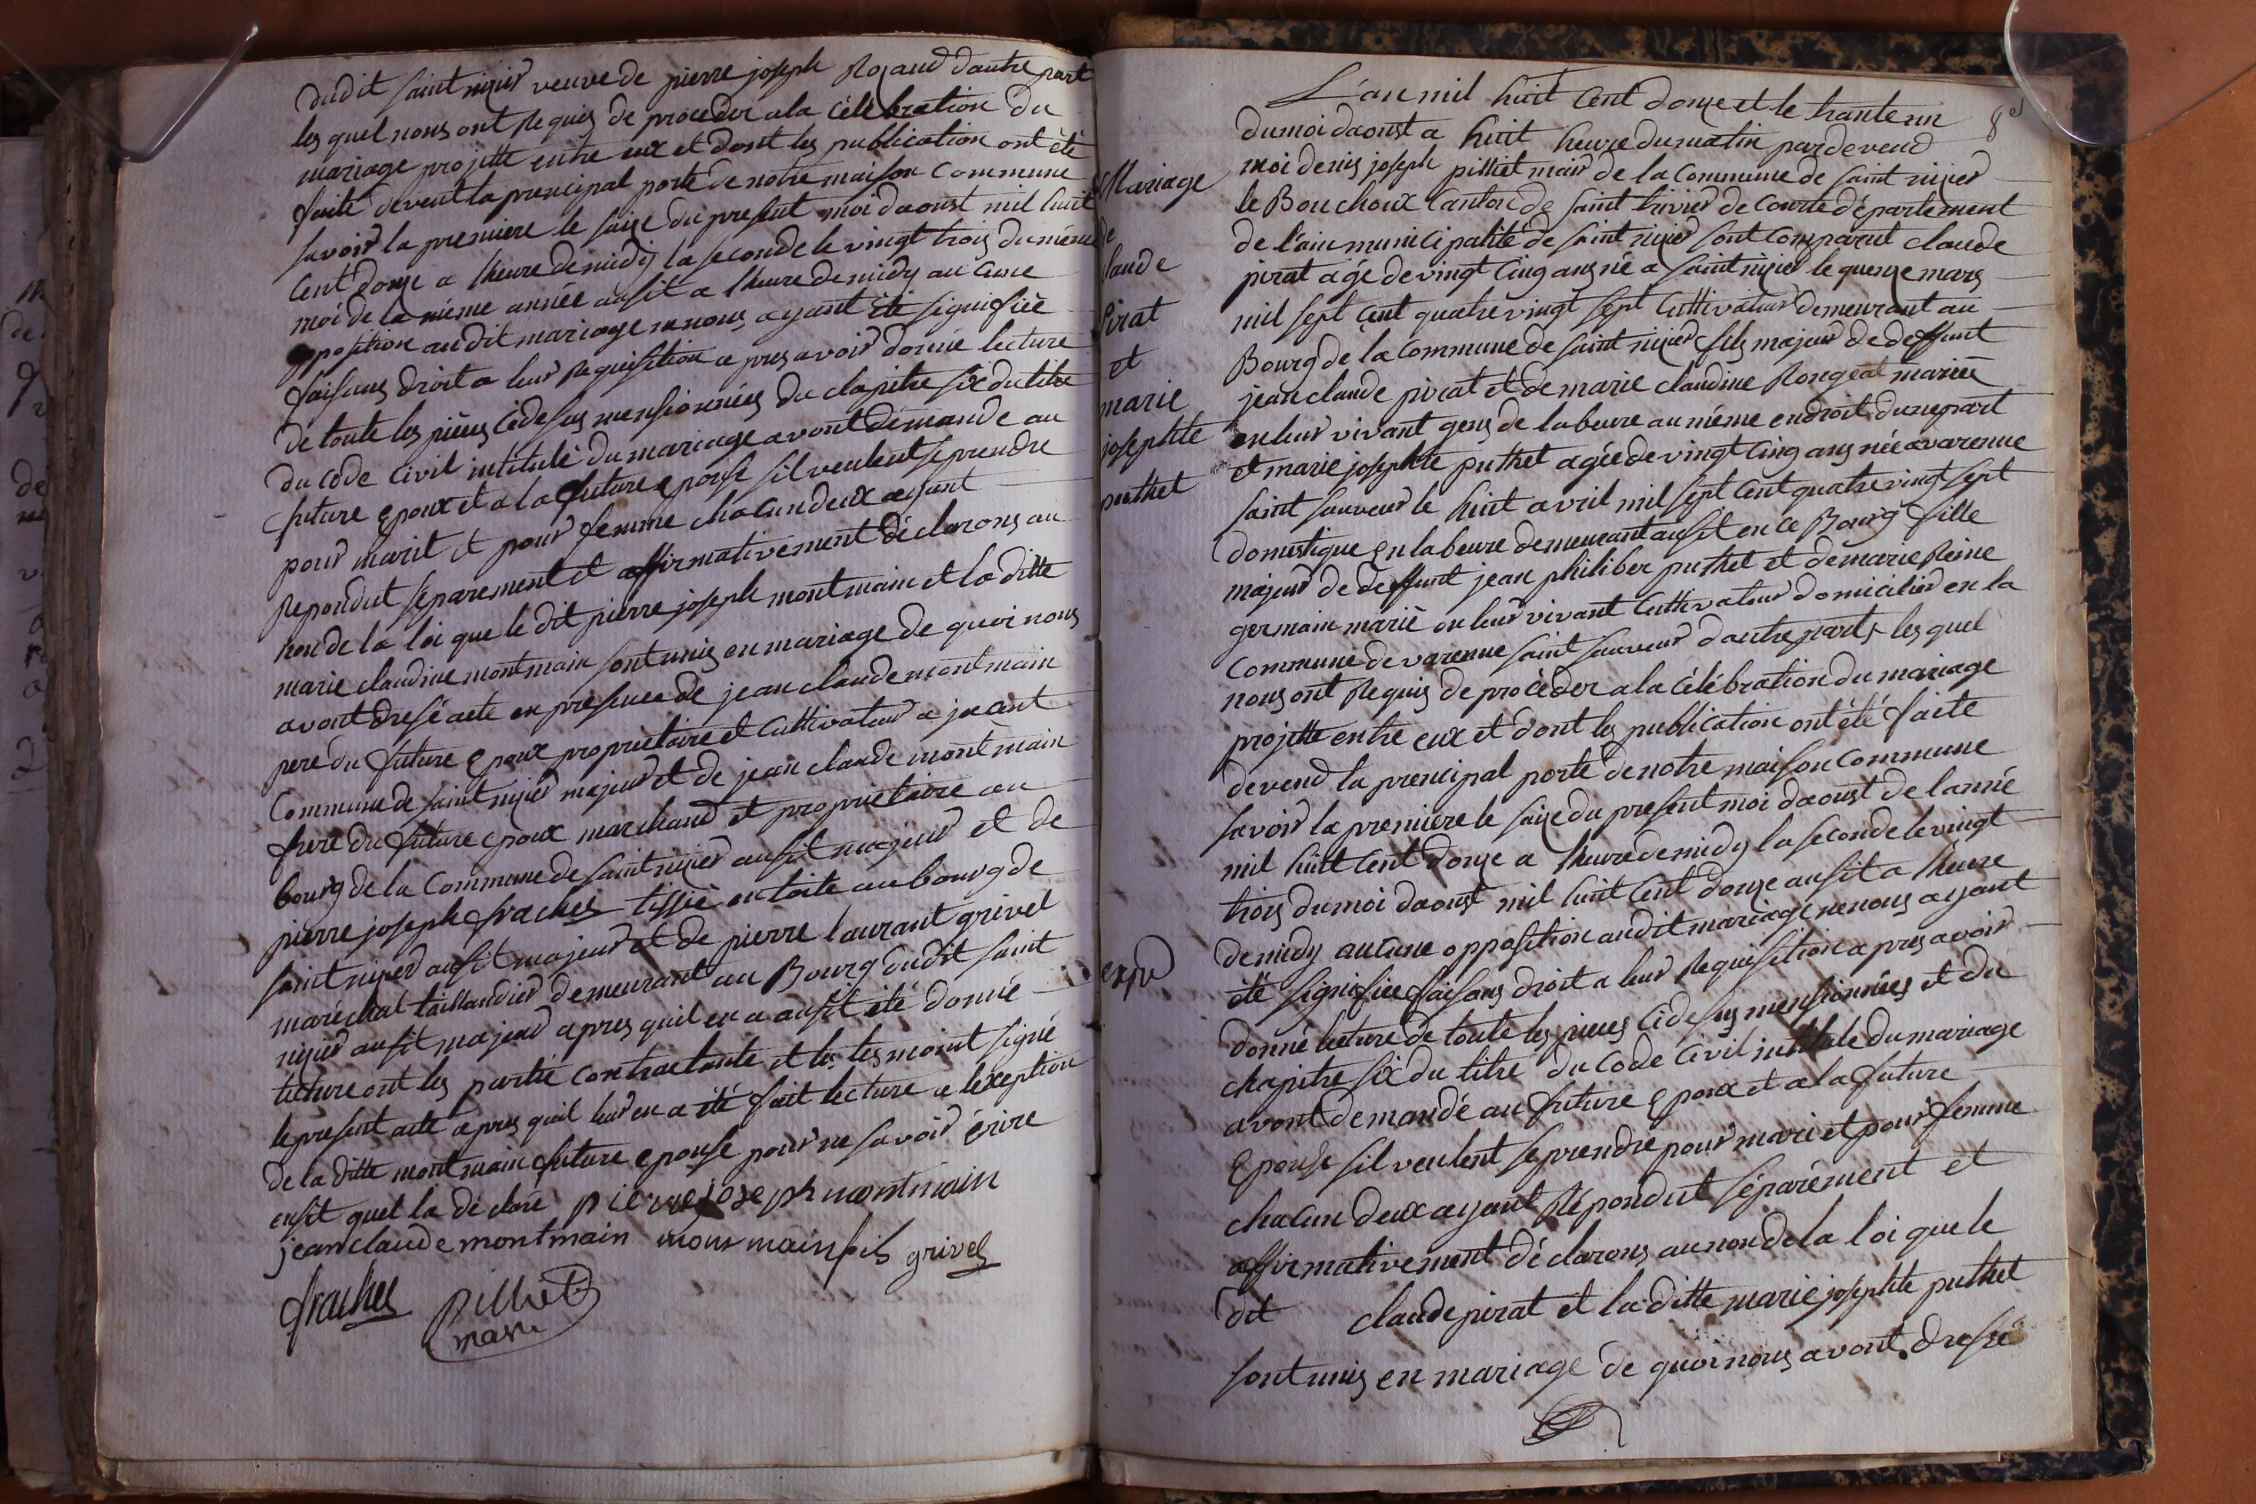 dudit saint nizier veuve de pierre joseph Rozand dautre part
les quel nous ont Requis de proceder a la célébration du
mariage projetté entre eux et dont les publication ont été
faite devent la prencipal porte de notre maison Commune
savoir la premiere le saize du present moi daoust mil huit
Cent douze a lheure de midÿ la seconde le vingt trois du méme
moi de la méme année ausit a lheure de midy au Cune
opposition audit mariage ne nous ayant été signifiée
faisans droit a leur Requisition a pres avoir donné lecture
de toute les pieces Cidesus mensionnées du chapitre six du titre
du Code Civil intitulé du mariage avont démande au
future epoux et a la future epouse sil veulent se prendre
pour marit et pour femme chacun deux ayant
Repondut séparement et affirmativement déclarons au
non de la loi que le dit pierre joseph montmain et la ditte
marie claudine montmain sont unis en mariage de quoi nous
avont dresé acte en presence de jean claude montmain
pere du future epoux proprietaire et Cultivateur a
Commune de saint nizier majeur et de jean claude montmain
frere du future epoux marchand et proprietaire au
bourg de la Commune de saint nizier ausit majeur et de
pierre joseph frachet tissié en toile au bourg de
saint nizier ausit majeur et de pierre laurant grivel
maréchal taillandier demeurant au Bourg dudit saint
nizier ausit majeur apres quil en a ausit été donné
lecture ont les partie contractante et les tesmoint signé
le present acte apres quil leur en a été fait lecture a léxception
de la ditte montmain future epouse pour ne savoir écrire
ensit quel la déclaré pierre joseph montmain
jean claude montmain montmain fils grivel
frachet Pilliet
maire
8e
L'an mil huit Cent douze et le trante un
du moi daoust a huit heure du matin pardevend
moi denis joseph pilliet mair de la Commune de saint nizier
le Bouchoux Canton de saint trivier de Courte département
de l'ain municipalité de saint nizier sont Comparut claude
pirat agé de vingt Cinq ans né a saint nizier le quenze mars
mil sept Cent quatre vingt sept Cultivateur demeurant au
Bourg de la Commune de saint nizier fils majeur de deffunt
jean claude pirat et de marie claudine Rongeat mariée
en leur vivant gens de labeure au méme endroit dune part
et marie josephte puthet agée de vingt Cinq ans née a varenne
saint sauveur le huit avril mil sept Cent quatre vingt sept
domestique en labeure demeurant ausit en ce Bourg fille
majeur de deffunt jean philiber puthet et de marie Reine
germain marié en leur vivant Cultivateur domicilier en la
Commune de varenne saint sauveur dautre part les quel
nous ont Requis de procéder a la célébration du mariage
projetté entre eux et dont les publication ont été faite
devend la prencipal porte de notre maison Commune
savoir la premiere le saize du present moi daoust de lanné
mil huit Cent douze a lheure de midy la seconde le vingt
trois du moi daoust mil huit Cent douze ausit a lheure
de midy aucune opposition audit mariage ne nous ayant
été signifiée faisans droit a leur Requisition a pres avoir
donné lecture de toute les pieces Cidesus mensionnées et du
chapitre six du titre du Code Civil intitulé du mariage
avont demandé au future epoux et a la future
epouse sil veulent se prendre pour mari et pour femme
chacun deux ayant Répondut séparément et
affirmativement déclarons au non de la loi que le
dit claude pirat et la ditte marie josephte puthet
sont unis en mariage de quoi nous avont dresé
Mariage
de
claude
Pirat
et
marie
josephte
puthet